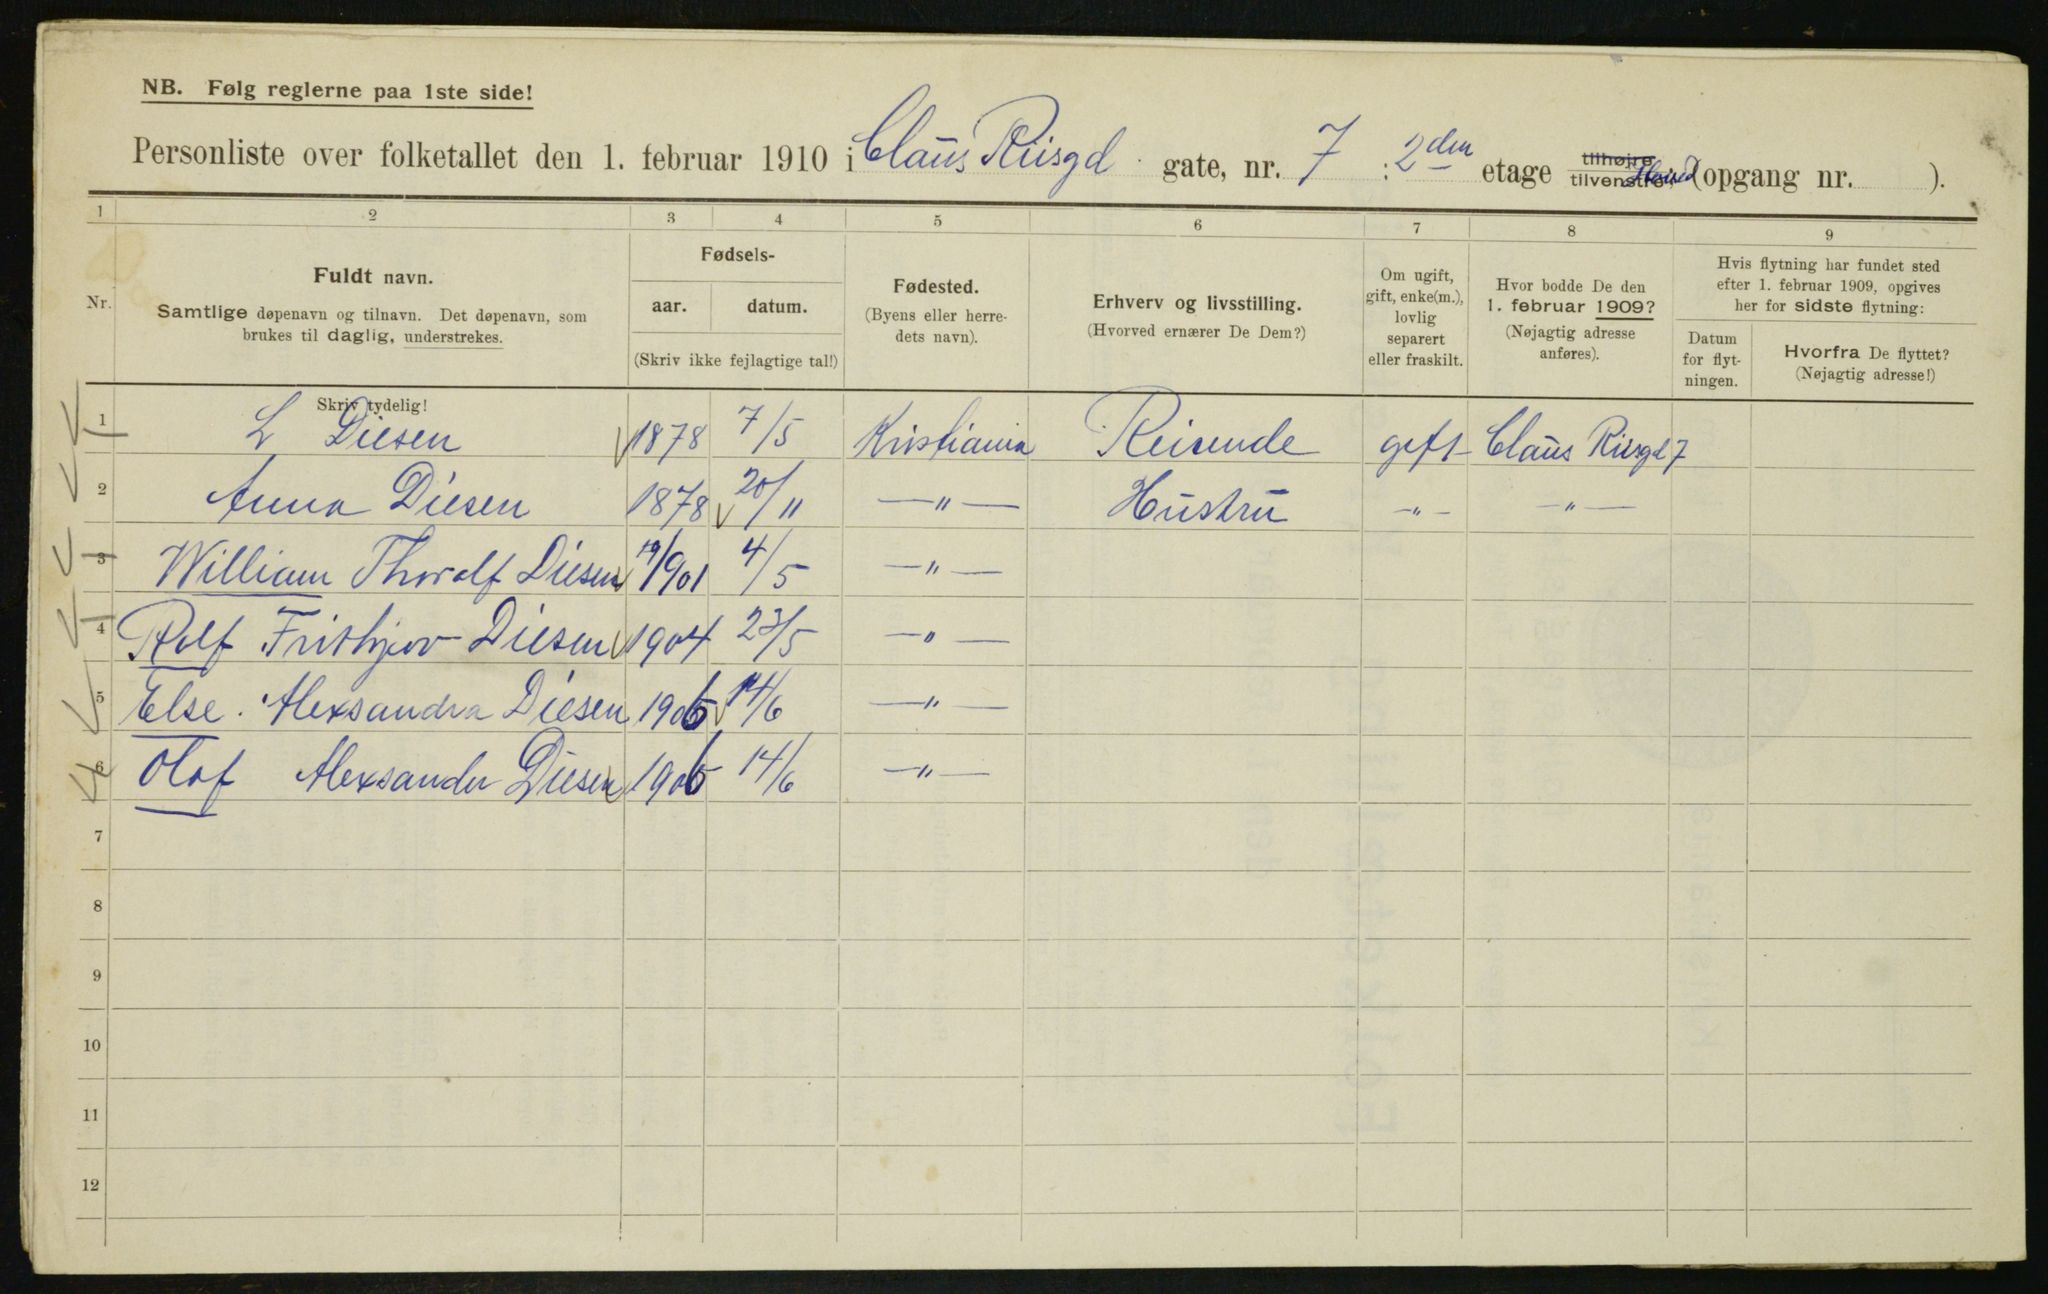 NB. Følg reglerne paa 1ste side!
Personliste over folketallet den 1. februar 1910 i Claus Riisgd gate, nr. 7 : 2den etage tilhøjre tilvenstre (opgang nr. ).
1 2 3 4 5 6 7 8 9
Nr.
Fuldt navn.
Samtlige døpenavn og tilnavn. Det døpenavn, som
brukes til daglig, understrekes.
Skriv tydelig!
Fødsels-
aar. datum.
(Skriv ikke fejlagtige tal!)
Fødested.
(Byens eller herre-
dets navn).
Erhverv og livsstilling.
(Hvorved ernærer De Dem?)
Om ugift,
gift, enke(m.),
lovlig
separert
eller fraskilt.
Hvor bodde De den
1. februar 1909?
(Nøjagtig adresse
anføres).
Hvis flytning har fundet sted
efter 1. februar 1909, opgives
her for sidste flytning:
Datum
for flyt-
ningen.
Hvorfra De flyttet?
(Nøjagtig adresse!)
1 L Diesen 1878 7/5 Kristiania Reisende gift Claus Riisgd 7
2 Anna Diesen 1878 20/11 —"— Hustru —"— —"—
3 William Thoralf Diesen 19/901 4/5 —"—
4 Rolf Frithjov Diesen 1904 23/5 —"—
5 Else Alexsandra Diesen 1906 14/6 —"—
6 Olaf Alexsander Diesen 1906 14/6 —"—
7
8
9
10
11
12